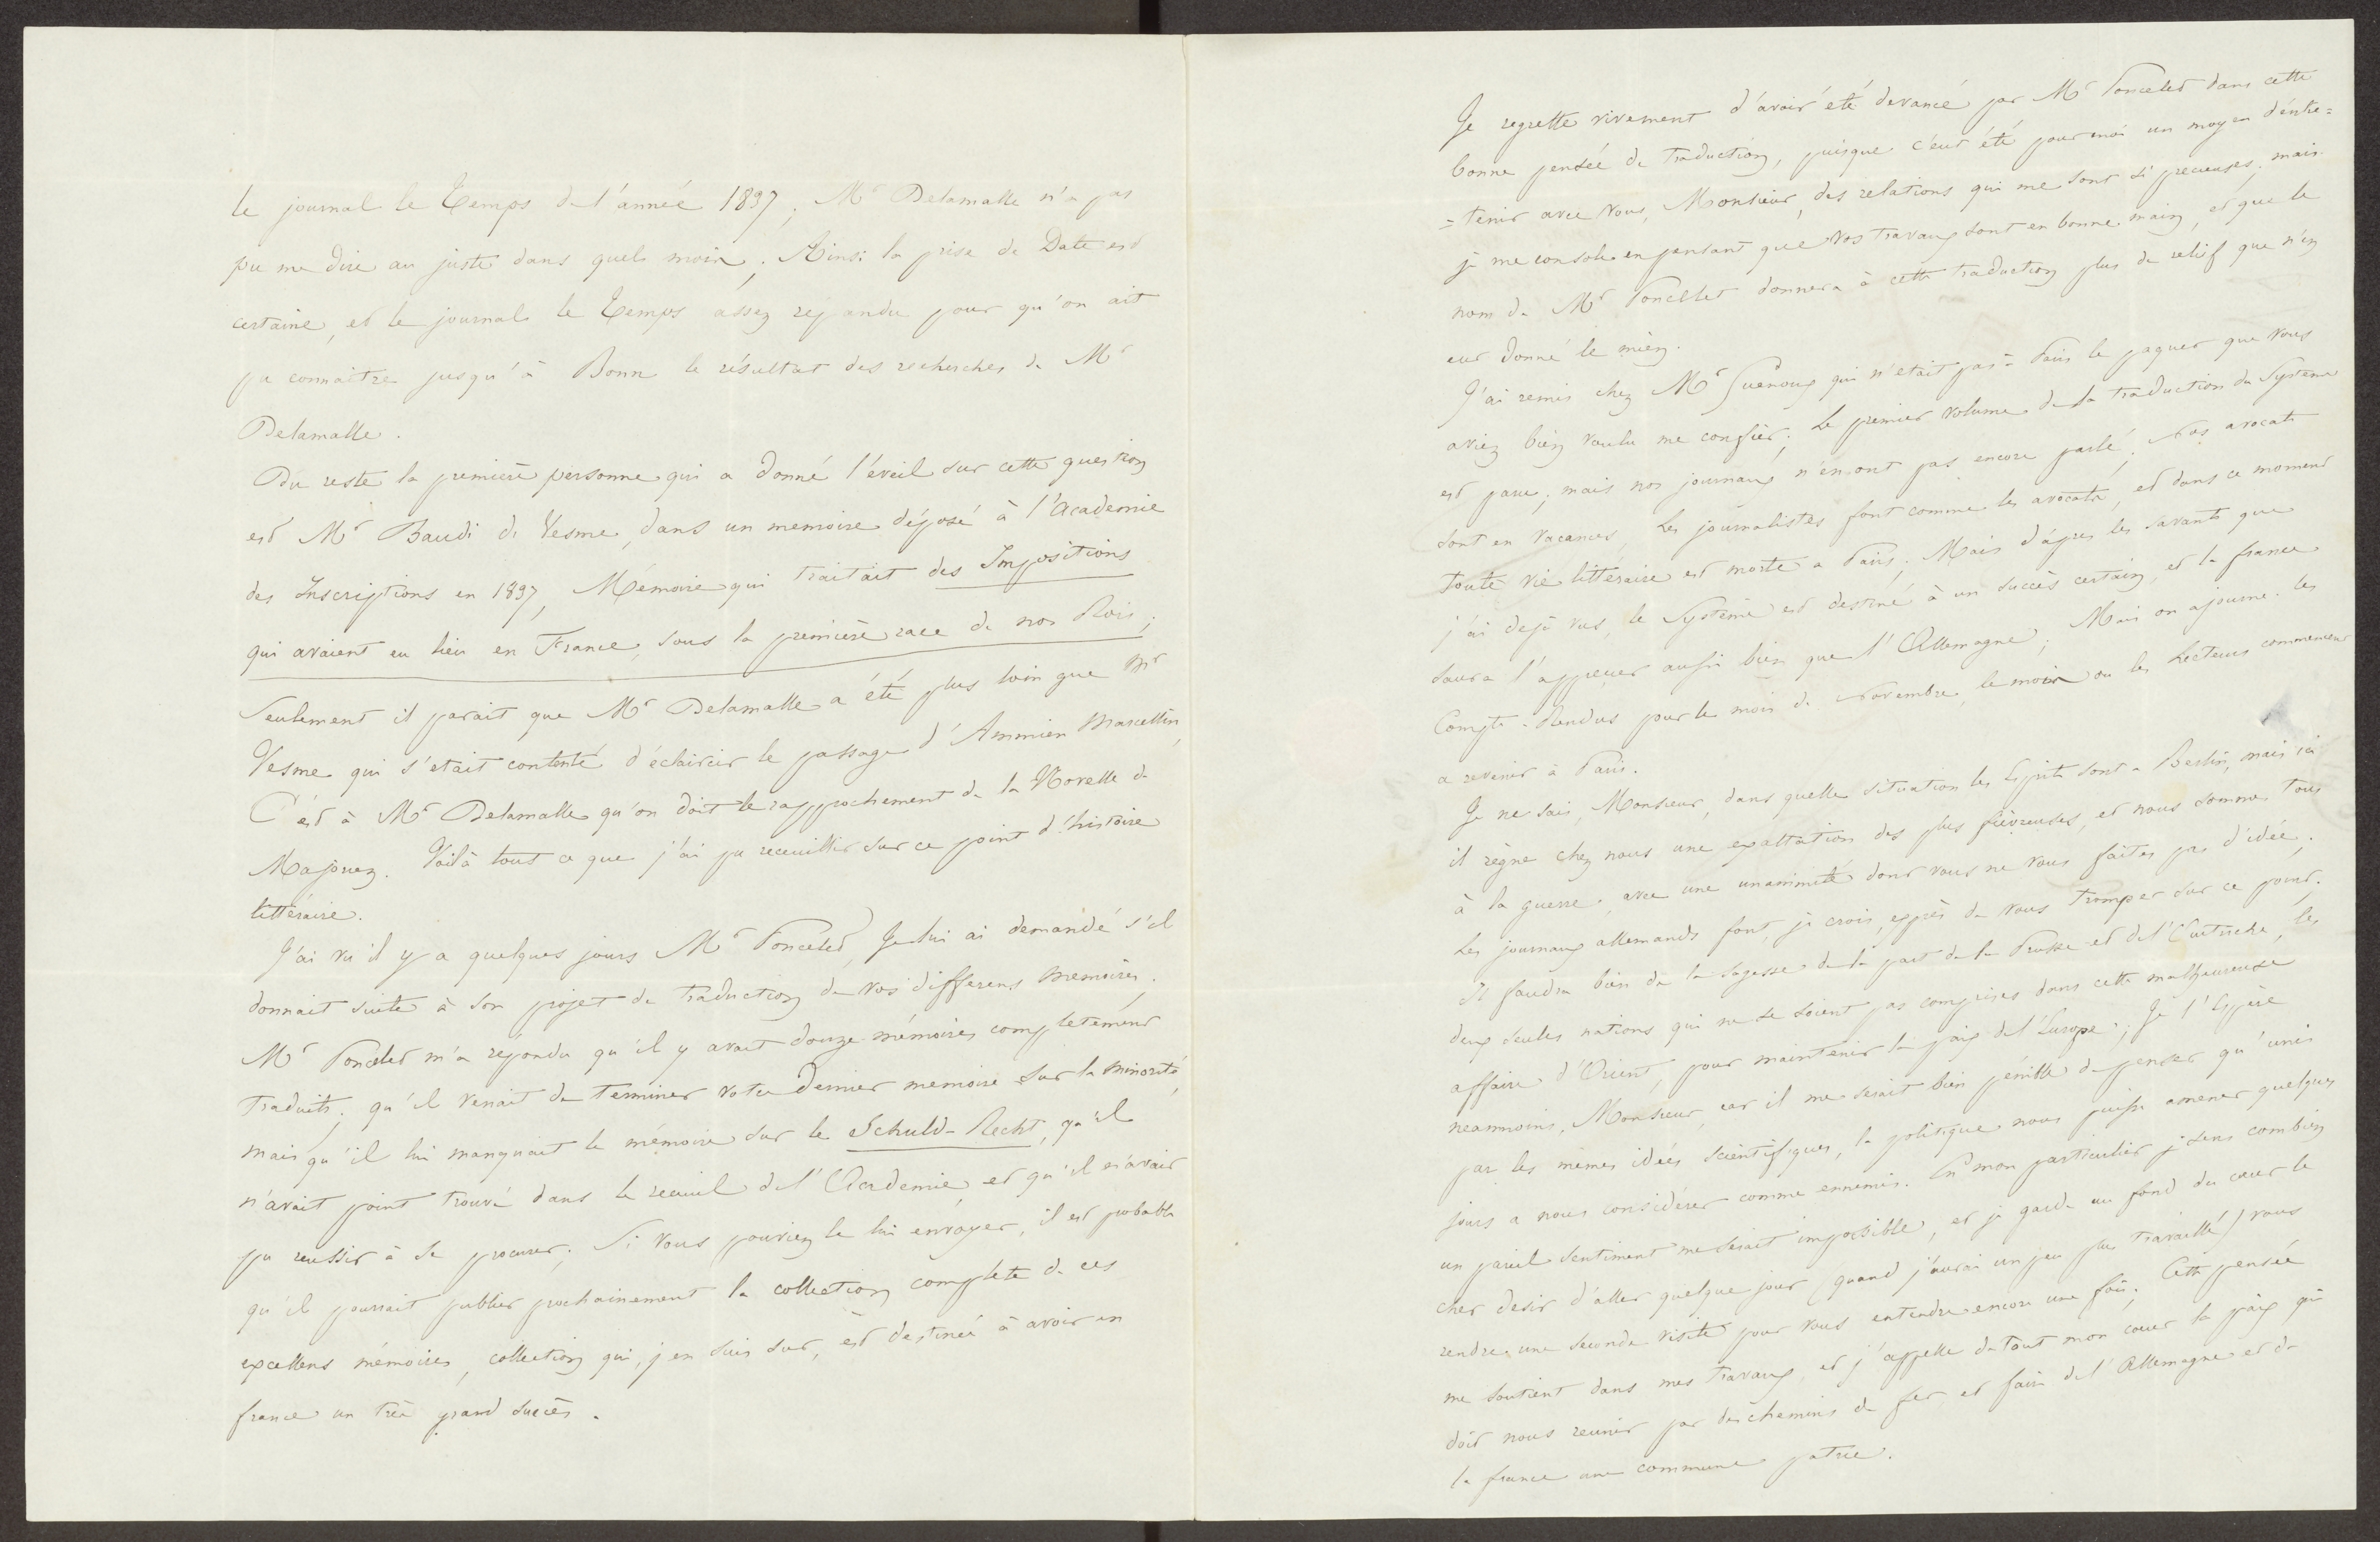 le journal le Temps de l'année 1837; Mr Delamalle n'a pas
pu me dire au juste dans quel mois. Ainsi la prise de Date est
certaine, et le journal le Temps assez répandu pour qu'on ait
pu connaitre jusqu'à Bonn le résultat des recherches de Mr
Delamalle.
Du reste la premiere personne qui a donné l'éveil sur cette question
est Mr Baudi di Vesme, dans un memoire déposé à l'academie
des Inscriptions en 1837, Mémoire qui traitait des Impositions
qui avaient eu lieu en France, sous la première race de nos Rois;
Seulement il parait que Mr Delamalle a été plus loin que Mr
Vesme qui s'etait contenté d'éclaircir le passage d'Ammien Marcellin,
C'est à Mr Delamalle qu'on doit le rapprochement de la Novelle de
Majorien. Voilà tout ce que j'ai pu receuillir sur ce point d'histoire
littéraire.
J'ai vu il y a quelques jours Mr Poncelet, Je lui ai demandé s'il
donnait suite à son projet de traduction de vos differens memoires.
Mr Poncelet m'a répondu qu'il y avait douze mémoires completement
traduits, qu'il venait de terminer votre dernier memoire sur la minorité,
mais qu'il lui manquait le mémoire sur le Schuld-Recht, qu'il
n'avait point trouvé dans le receuil de l'Academie, et qu'il n'avait
pu reussir à se procurer; Si vous pouviez le lui envoyer, il est probable
qu'il pourrait publier prochainement la collection complete de ces
excellens mémoires, collection qui, j'en suis sur, est destinée à avoir en
france un très grand succès.
Je regrette vivement d'avoir été devancé par Mr Poncelet dans cette
bonne pensée de traduction, puisque c'eut été pour moi un moyen d'entre=
=tenir avec vous, Monsieur, des relations qui me sont si precieuses; mais
je me console en pensant que vos travaux sont en bonne main, et que le
nom de Mr Poncelet donnera à cette traduction plus de relief que n'en
eut donné le mien.
J'ai remis chez Mr Guenoux qui n'etait pas à Paris le paquet que vous
aviez bien voulu me confier; Le premier volume de la traduction du Systeme
est paru; mais nos journaux n'en ont pas encore parlé. Nos avocats
sont en vacances, Les journalistes font comme les avocats, et dans ce moment
toute vie littéraire est morte a Paris; Mais d'après les savants que
j'ai dejà vus, le Systeme est destiné à un succès certain, et la france
saura l'apprecier aussi bien que l'Allemagne; Mais on ajourne les
Compte-Rendus pour le mois de Novembre, le mois ou les Lecteurs commencent
a revenir à Paris.
Je ne sais, Monsieur, dans quelle situation les Esprits sont a Berlin, mais ici
il règne chez nous une exaltation des plus fièvreuses, et nous sommes tous
à la guerre, avec une unanimité dont vous ne vous faites pas d'idée.
Les journaux allemands font, je crois, exprès de vous tromper sur ce point.
Il faudra bien de la sagesse de la part de la Prusse et de l'Autriche, les
deux seules nations qui ne se soient pas comprises dans cette malheureuse
affaire d'Orient, pour maintenir la paix de l'Europe; Je l'Espère
neanmoins, Monsieur, car il me serait bien pénible de penser qu'unis
par les mêmes idées scientifiques, la politique nous puisse amener quelques
jours a nous considérer comme ennemis. En mon particulier je sens combien
un pareil sentiment me serait impossible, et je garde au fond du cœur le
cher desir d'aller quelque jour (quand j'aurai un peu plus travaillé) vous
rendre une seconde visite pour vous entendre encore une fois; Cette pensée
me soutient dans mes travaux, et j'appelle de tout mon cœur la paix qui
doit nous reunir par des chemins de fer, et faire de l'Allemagne et de
la france une commune patrie.